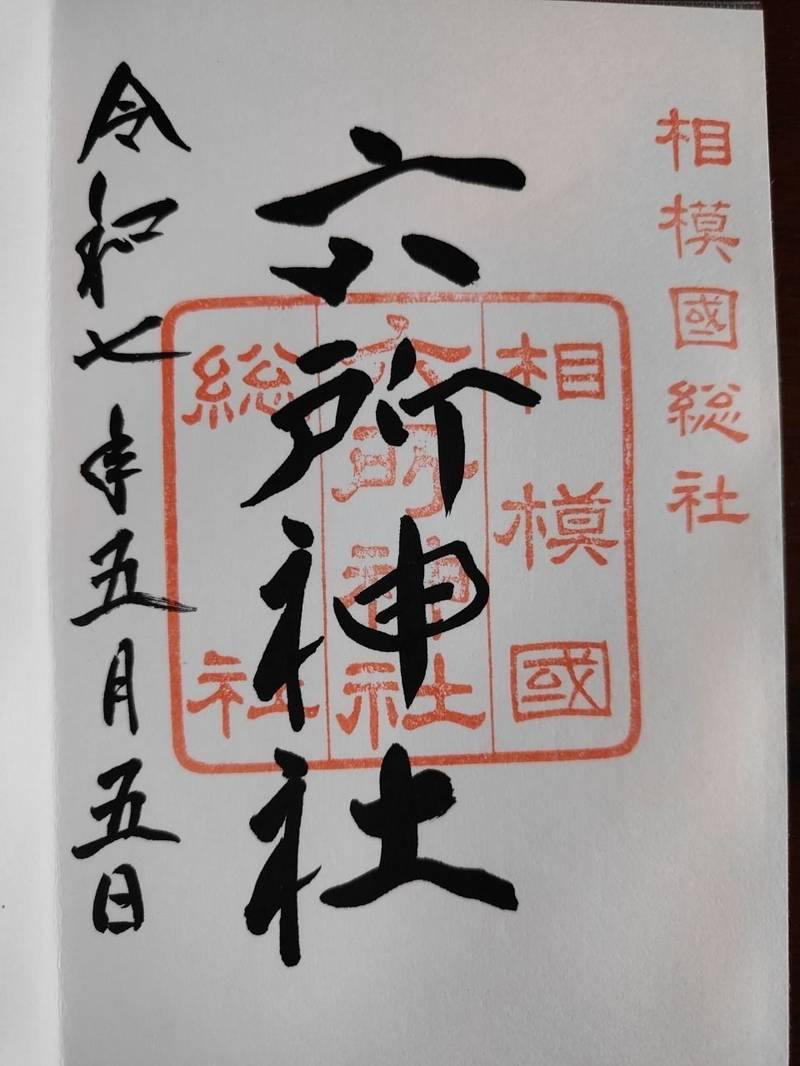 相模國総社
相模國
六所神社
総社
六所神社
令和七年五月五日